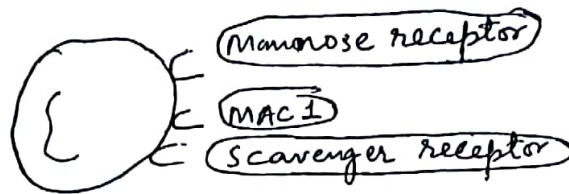 Mannose receptor
MAC 1
Scavenger receptor